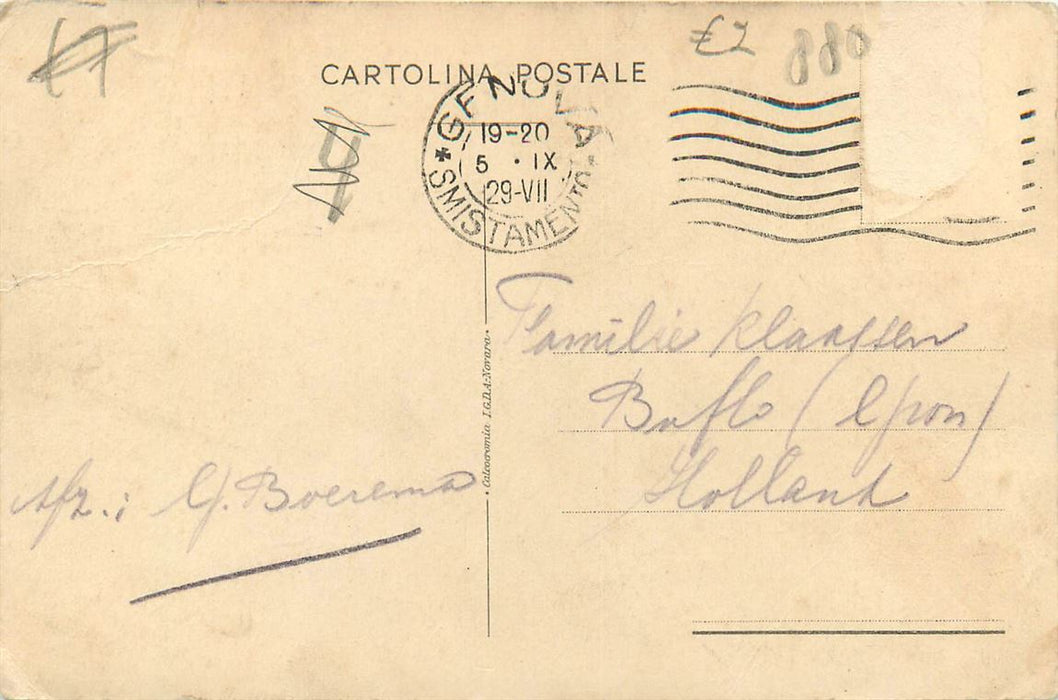 €2 880
CARTOLINA POSTALE
GENOVA
19-20
5 · IX
29-VII
SMISTAMENTO
Familie Klaassen
Baflo (Gron)
Holland
Afz.: G. Boerema
• Calcocromia I.G.D.A.-Novara •